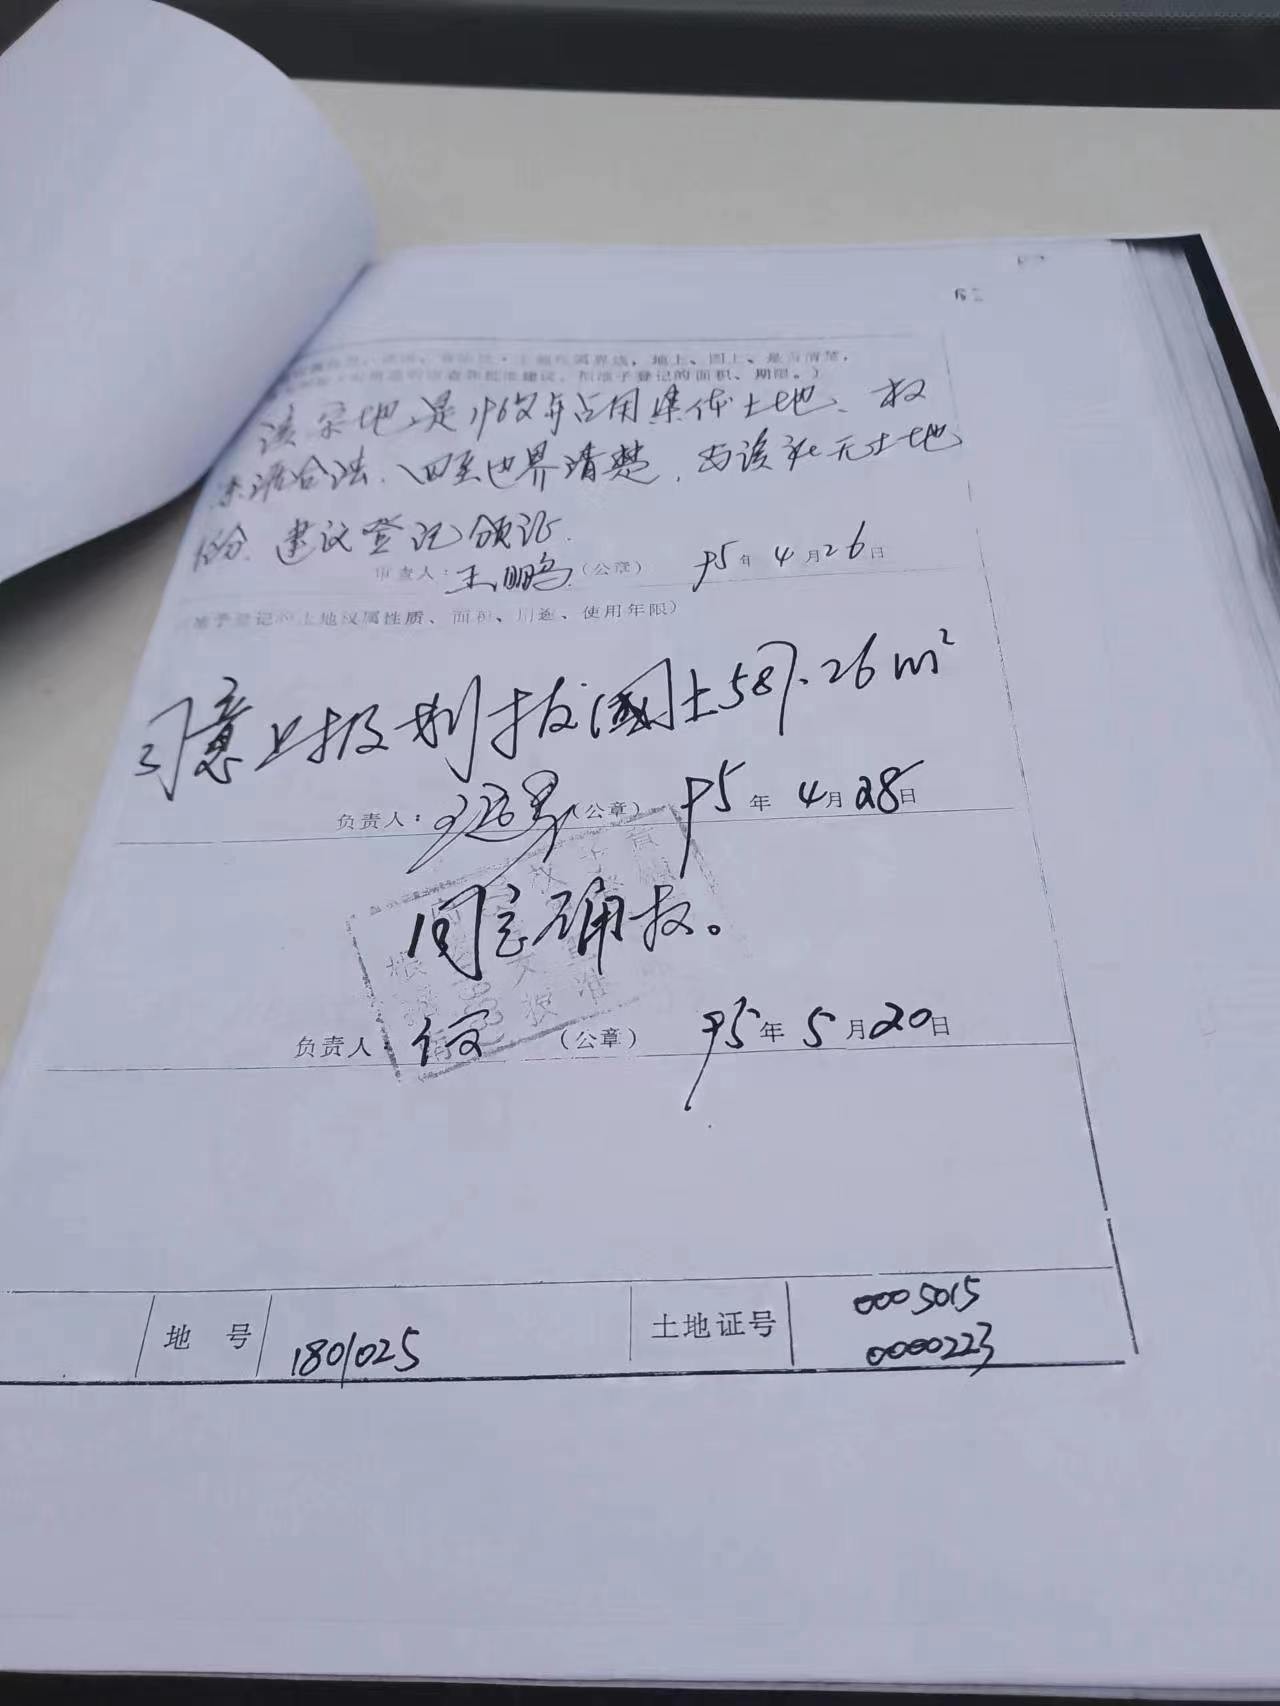 土地权属界线，地上、图上、是否清楚，
审查和批准建议，和准予登记的面积、期限。）
该宗地是 年占用集体土地、权
来源合法、四至边界清楚，与该 无土地
建议登记领证
审查人：王鹏（公章） 95年4月26日
（准予登记的土地权属性质、面积、用途、使用年限）
同意上报划拨国土587.26m²
负责人： （公章） 95年4月28日
同意确权。
负责人： （公章） 95年5月20日
地号 1801025 土地证号 0005015
0000223